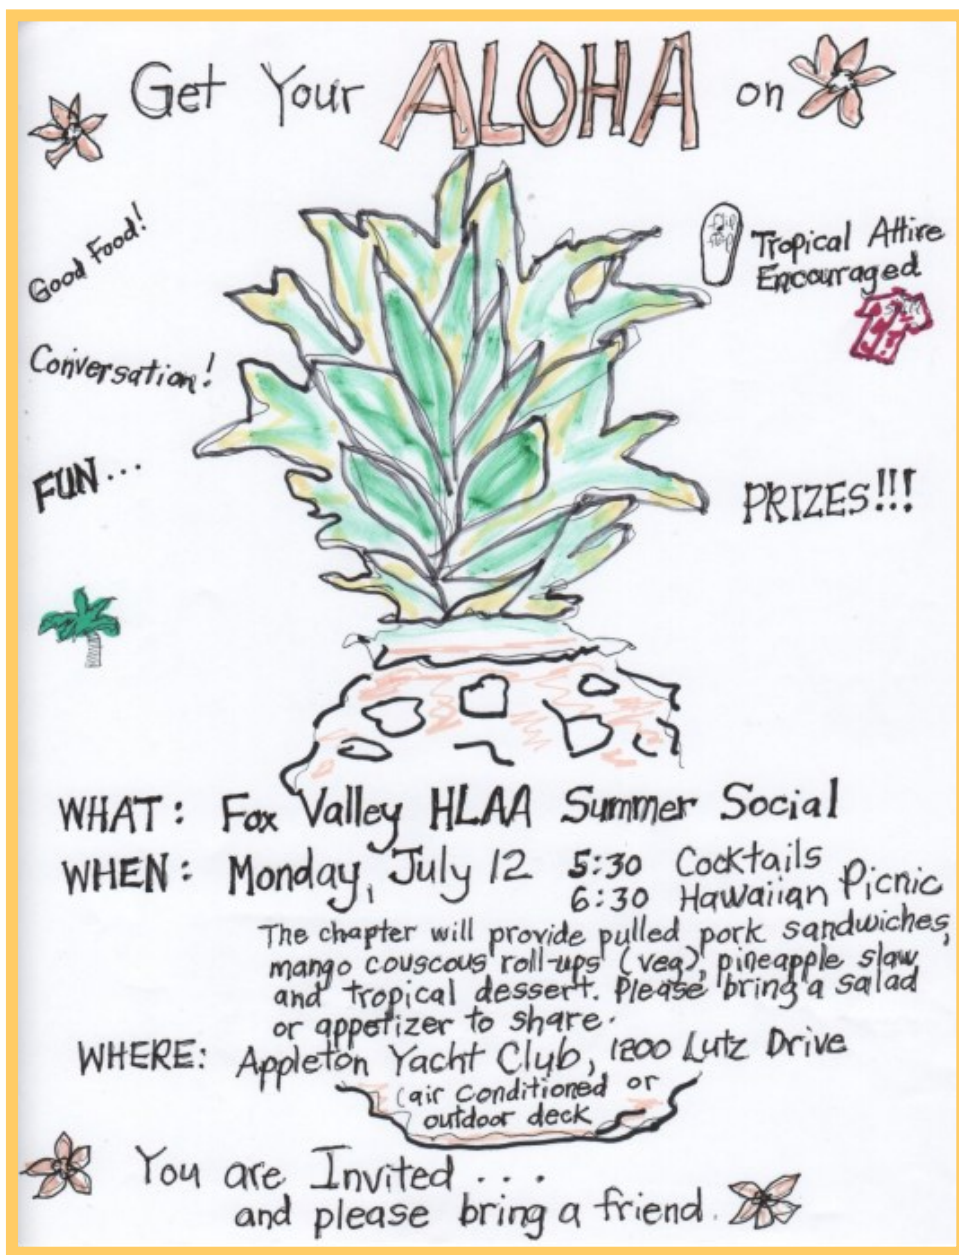 Get Your ALOHA on
Good Food!
Conversation!
FUN...
flip
flop
Tropical Attire
Encouraged
PRIZES!!!
WHAT: Fox Valley HLAA Summer Social
WHEN: Monday, July 12 5:30 Cocktails
6:30 Hawaiian Picnic
The chapter will provide pulled pork sandwiches,
mango couscous roll-ups (veg), pineapple slaw
and tropical dessert. Please bring a salad
or appetizer to share.
WHERE: Appleton Yacht Club, 1200 Lutz Drive
(air conditioned or
outdoor deck
You are Invited....
and please bring a friend.